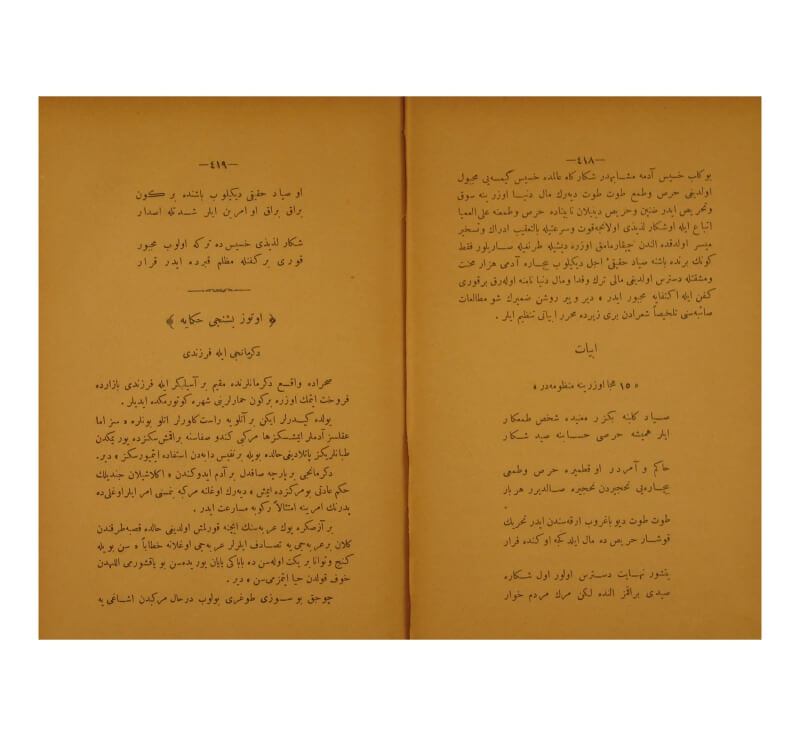 —٤١٨—
بوكلب خسيس آدمه مشابهدر شكاركاه عالمده خسيس كيمسه‌يى مجبول
اولديغى حرص وطمع طوت طوت ديه‌رك مال دنيا اوزرينه سوق
وتحريص ايدر ضنين وحريص ديديلان نابيناده حرص وطمعنه على العميا
اتباع ايله اوشكار لذيذى اولانجه‌قوت وسرعتيله بالتعقيب ادراك وتسخير
ميسر اولدقده الندن چيقارمامق اوزره ديشيله طرنغيله صاريلور فقط
كونك برنده باشنه صياد حقيقئ اجل ديكيلوب بيچاره آدمى هزار محنت
ومشقتله دسترس اولديغى مالى ترك وفدا ومال دنيا نامنه اوله‌رق برقورى
كفن ايله اكتفايه مجبور ايدر » دير وپير روشن ضميرك شو مطالعات
صائبه‌سنى تلخيصاً شعرادن برى زيرده محرر ابياتى تنظيم ايلر .
ابيات
« ١٥ هجا اوزرينه منظومه‌در »
صياد كلبنه بكزر معنيده شخص طمعكار
ايلر هميشه حرصى حسابنه صيد شكار
حاكم و آمردر او قطميره حرص وطمعى
بيچاره‌يى نحجيردن نحجيره صالديرر هربار
طوت طوت ديو باغروب ارقه‌سندن ايدر تحريك
قوشار حريص ده مال ايلدكجه اوكنده فرار
يتشور نهايت دسترس اولور اول شكاره
صيدى براقمز النده لكن مرك مردم خوار
—٤١٩—
او صياد حقيقى ديكيلوب باشنده بركون
براق براق اوامرين ايلر شدتله اصدار
شكار لذيذى خسيس‌ده تركه اولوب مجبور
قورى بركفنله مظلم قبرده ايدر قرار
﴿ اوتوز بشنجى حكايه ﴾
دكرمانجى ايله فرزندى
صحراده واقع دكرمانلرنده مقيم بر آسيابكر ايله فرزندى بازارده
فروخت ايتمك اوزره بركون حمارلرينى شهره كوتورمكده ايديلر .
يولده كيدرلر ايكن بر آتلويه راست‌كلورلر اتلو بونلره « سز اما
عقلسز آدملر ايتمشسكزها مركبى كندو صفاسنه براقمش‌سكزده يوريمكدن
طبانلريكز پاتلاديغى حالده بويله برنفيس دابه‌دن استفاده ايتميورسكز » دير.
دكرمانجى بارچه صافدل بر آدم ايدوكندن « اكلاشيلان جنديلك
حكم عادتى بومركزده ايمش » ديه‌رك اوغلنه مركبه بنمسنى امر ايلر اوغلى‌ده
پدرنك امرينه امتثالاً ركوبه مسارعت ايدر .
بر آزصكره يوك عربه‌سنك ايچنه قورلمش اولديغى حالده قصبه‌طرفندن
كلان برعربه‌جى‌يه تصادف ايلرلر عربه‌جى اوغلانه خطاباً « سن بويله
كنج وتوانا بر يكت اوله‌سن ده باباكى يايان يوريده‌سن بو ياقشورمى اللهدن
خوف قولدن حيا ايتمزمى‌سن » دير .
چوجق بو سوزى طوغرى بولوب درحال مركبدن اشاغى يه